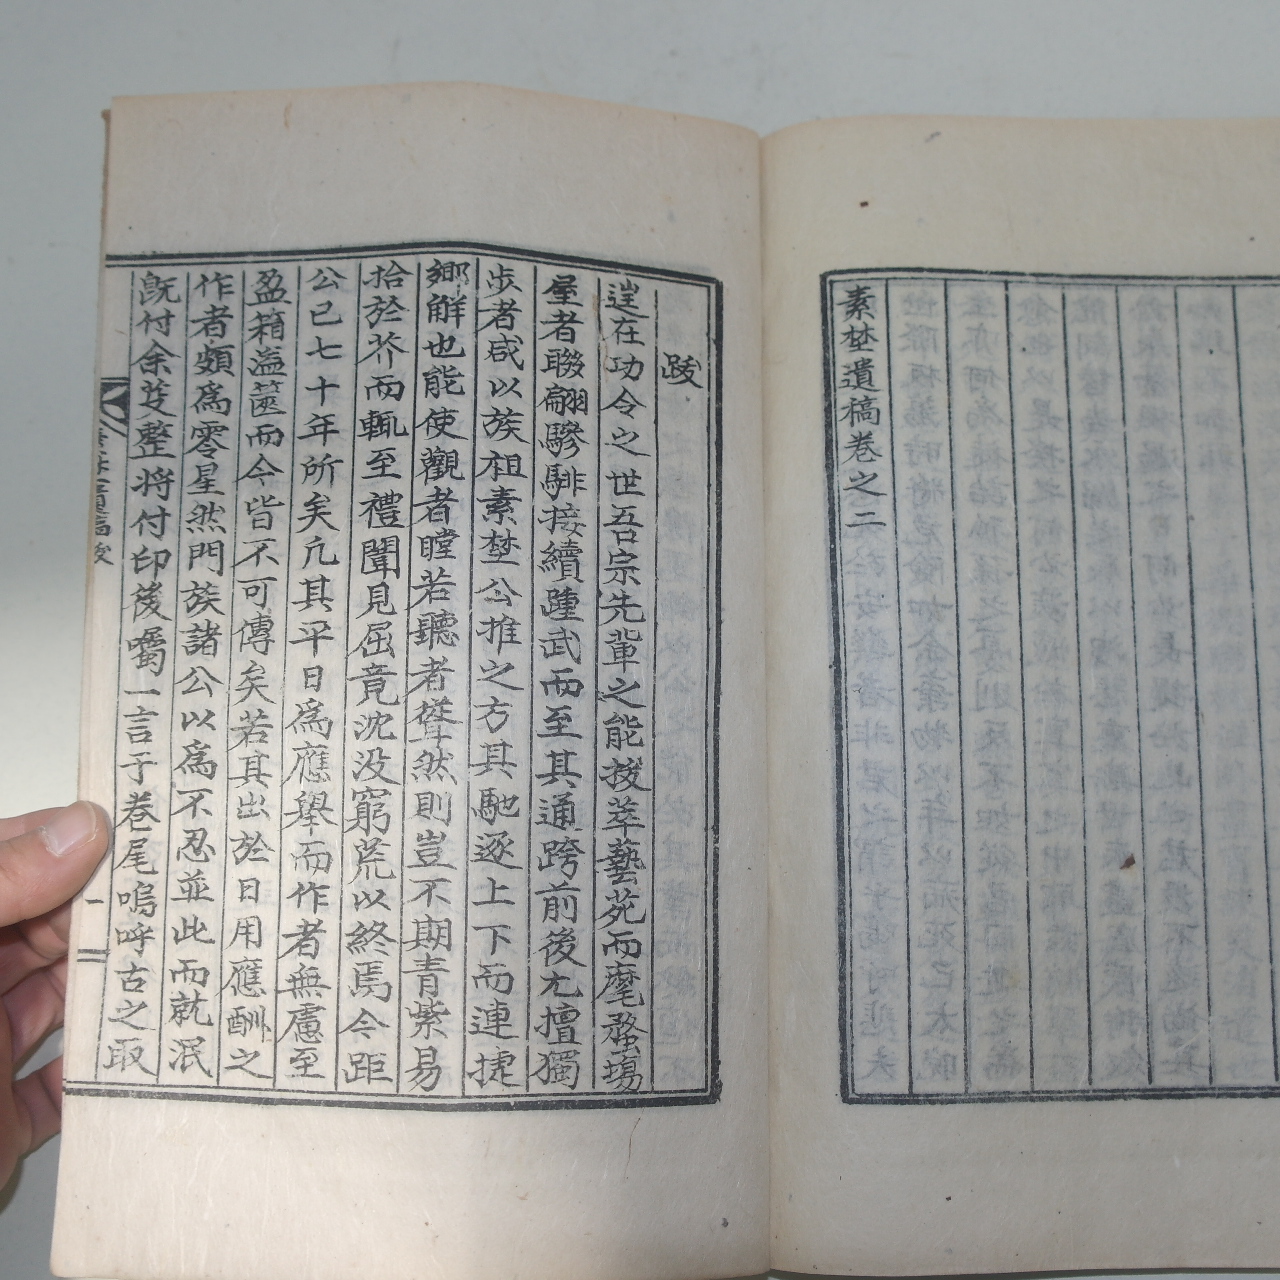 素埜遺稿卷之二
跋
逞在功令之世吾宗先輩之能拔萃藝苑而麾發塲
屋者聯翩驂騑接續踵武而至其通跨前後尤擅獨
步者咸以族祖素埜公推之方其馳逐上下而連捷
鄉解也能使觀者瞠若聽者聳然則豈不期靑紫易
拾於芥而輒至禮闈見屈竟沈没窮荒以終焉今距
公已七十年所矣凢其平日爲應舉而作者無慮至
盈箱溢篋而今皆不可傳矣若其出於日用應酬之
作者頗爲零星然門族諸公以爲不忍並此而就泯
旣付余芟整将付印後囑一言子卷尾嗚呼古之取
遺稿跋
一